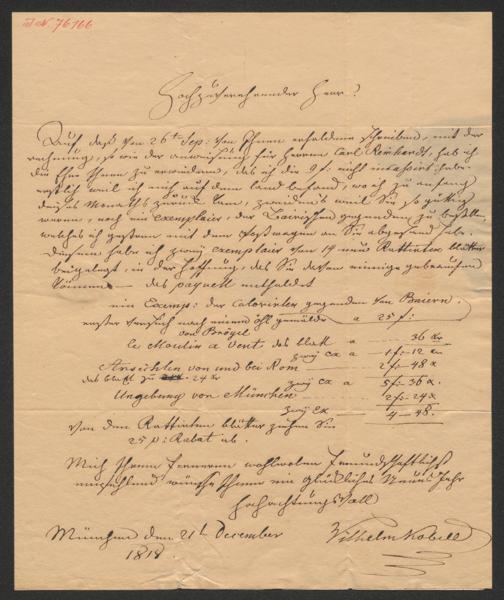 J.N. 76166
Hochzuverehrender Herr!
Auf das vom 26t Sep: von Ihnen erhaltene schreiben, mit der
rechnung, so wie der anweisung für Herrn Carl Reinhardt, hab ich
die Ehre Ihnen zu erwiedern, das ich die 9 f: nicht incassirt habe
erstlich weil ich mich auf dem land befand, wo ich zu anfang
dieses Monaths zurück kam, zweidens weil Sie so güttig
waren, noch ein Exemplair, der Bairischen gegenden zu bestellen,
welches ich gestern mit dem Postwagen an Sie abgesend habe.
Diesem habe ich zwey exemplair von 19 neue Radirten blätter
beÿgelegt, in der Hoffnung, das Sie davon einige gebrauchen
können — das paquett enthaldet
ein Exemp: der Colorirten gegenden von Baiern.
erster Versuch nach einem öhl gemälde a 25 f:
von Brögel
Le Moulin a Vent das blatt a 36 Kr
zweÿ ex a 1 f:- 12 Kr
Ansichten von und bei Rom 2 f:- 48 x
das blatt zu 24 Kr zweÿ ex a 5 f:- 36 x.
Umgebung von München 2 f:- 24 x
zweÿ Ex 4 — 48.
Von den Radirten blätter ziehen Sie
25 p: Rabat ab.
Mich Ihrem ferneren wohlwolen Freundschaftlichst
empfehlend wünsche Ihnen ein glückliches Neues Jahr
Hochachtungsvoll
München den 21t December Wilhelm Kobell
1818.